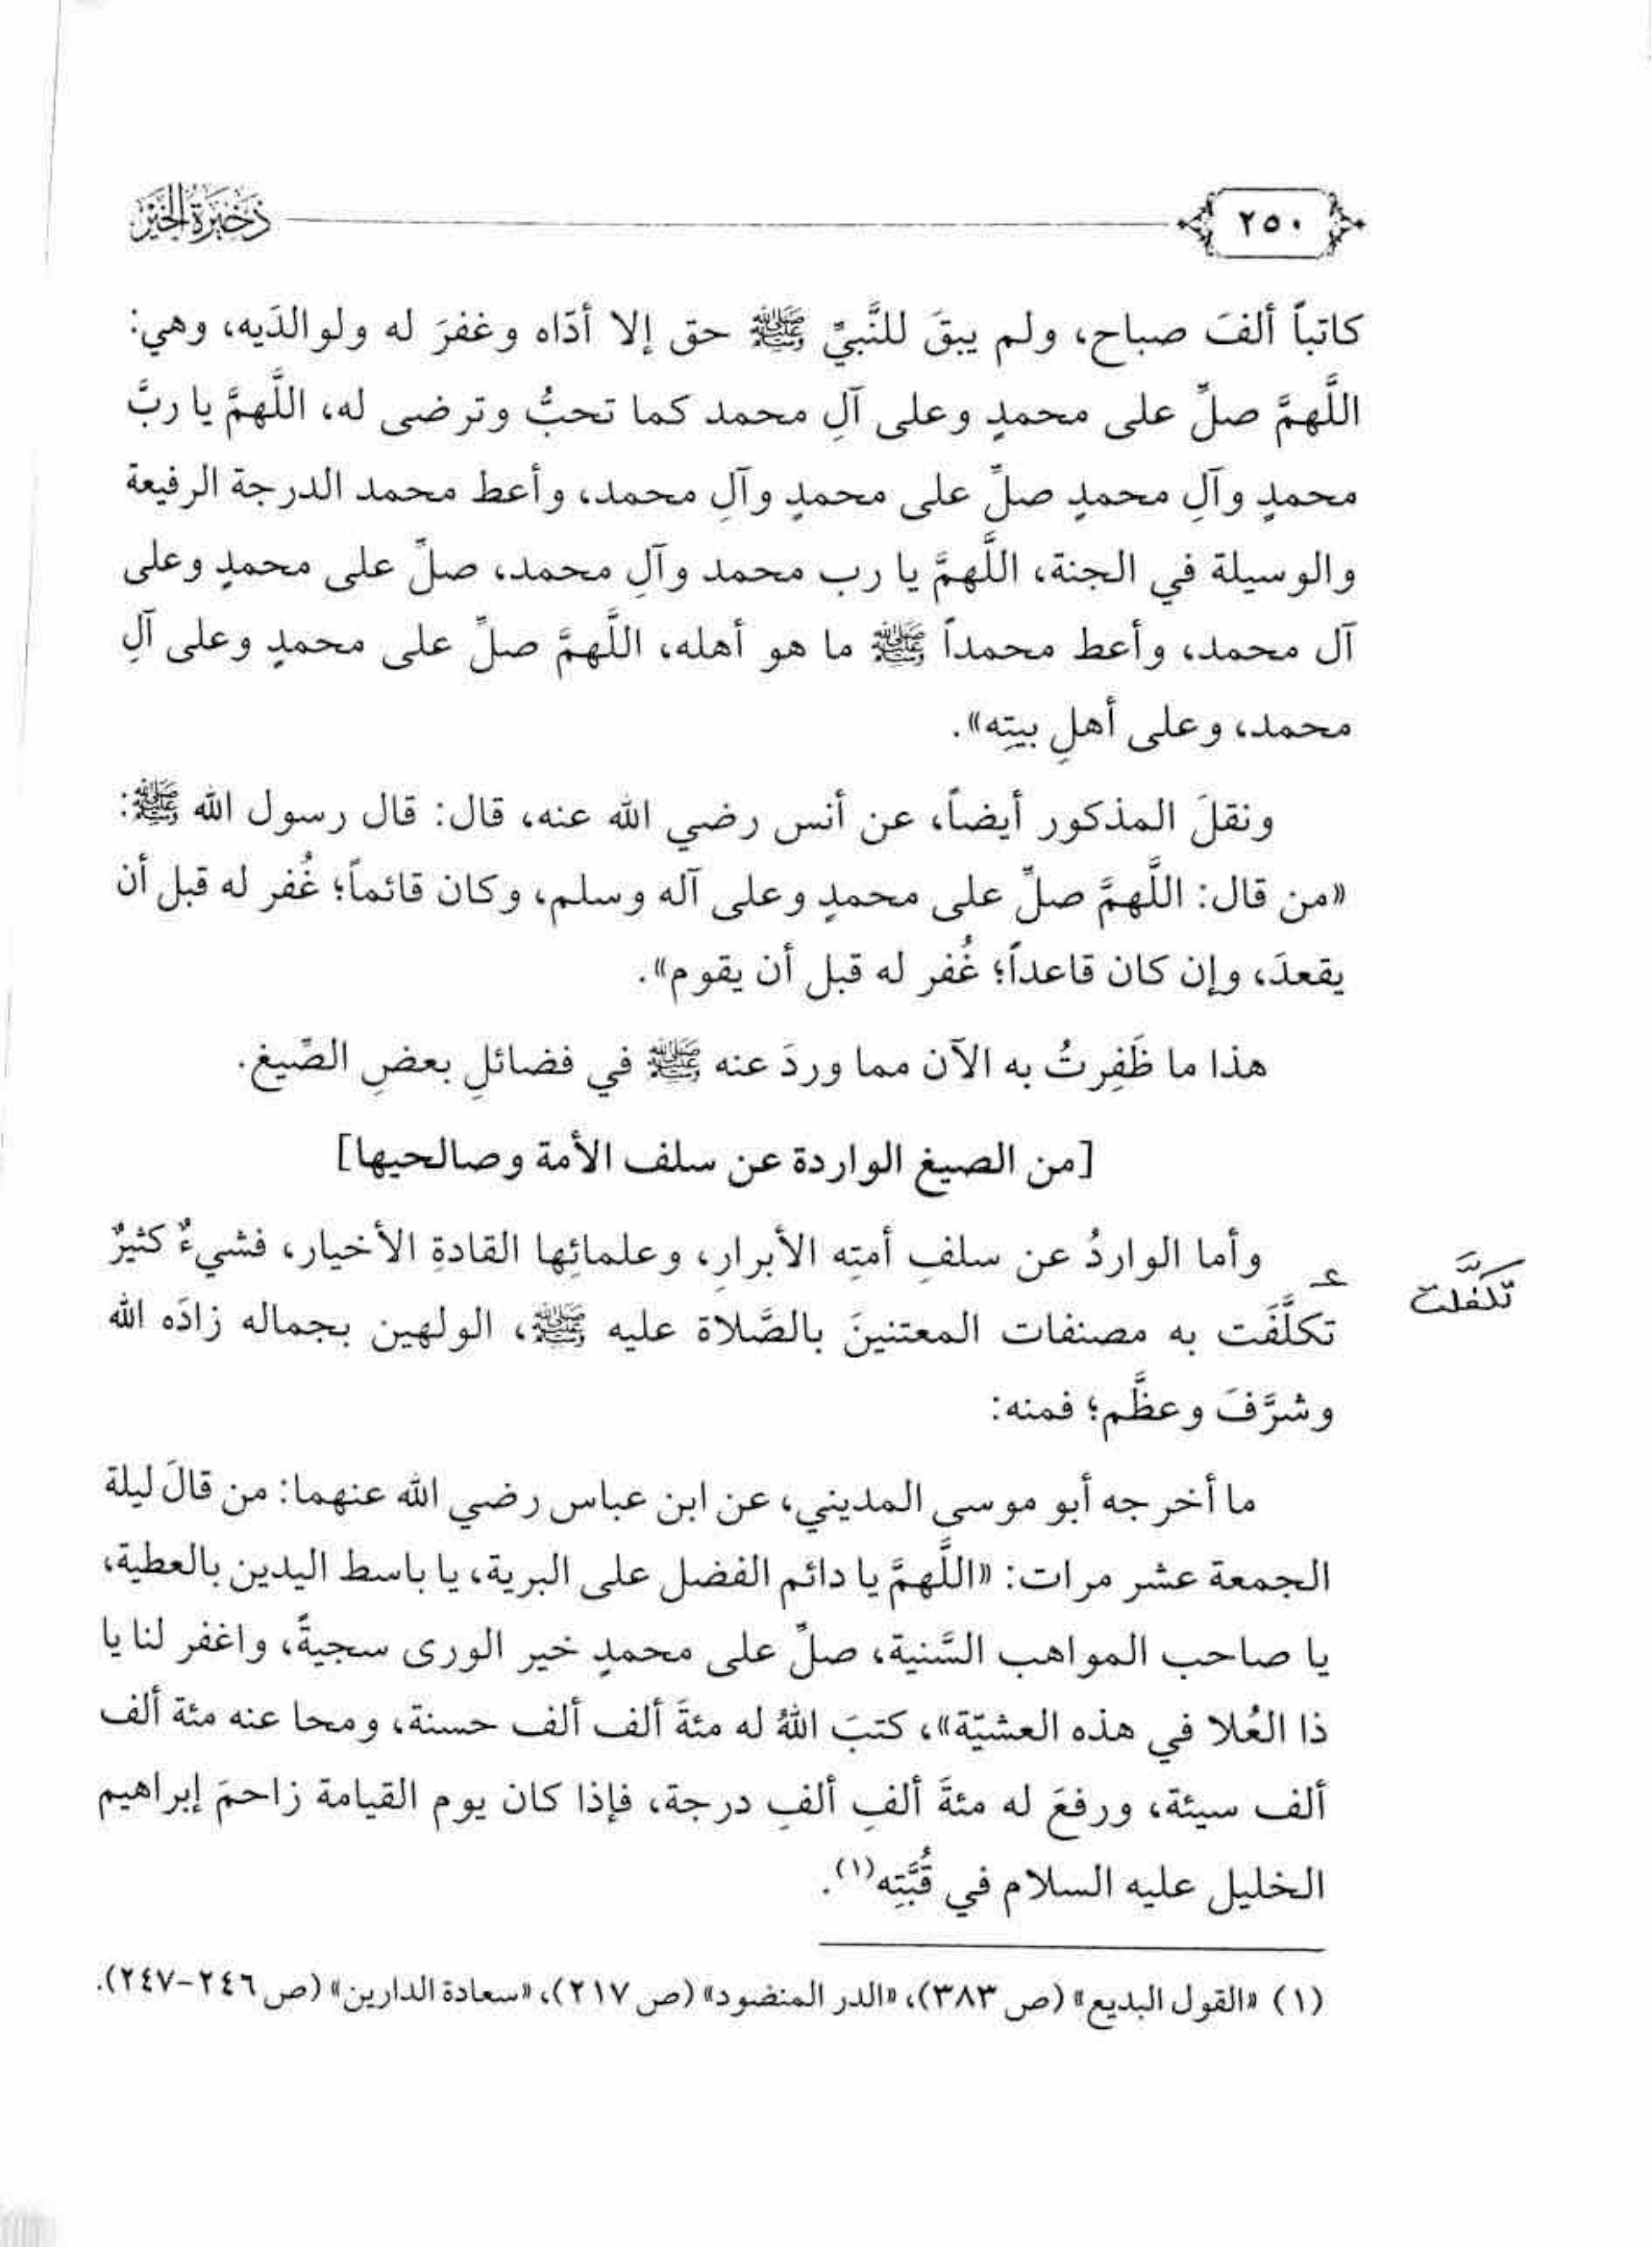 ٢٥٠
ذخيرة الخير
كاتباً ألفَ صباح، ولم يبقَ للنَّبيِّ ﷺ حق إلا أدّاه وغفرَ له ولوالدَيه، وهي:
اللَّهمَّ صلِّ على محمدٍ وعلى آلِ محمد كما تحبُّ وترضى له، اللَّهمَّ يا ربَّ
محمدٍ وآلِ محمدٍ صلِّ على محمدٍ وآلِ محمد، وأعط محمد الدرجة الرفيعة
والوسيلة في الجنة، اللَّهمَّ يا رب محمد وآلِ محمد، صلِّ على محمدٍ وعلى
آل محمد، وأعط محمداً ﷺ ما هو أهله، اللَّهمَّ صلِّ على محمدٍ وعلى آلِ
محمد، وعلى أهلِ بيتِه».
ونقلَ المذكور أيضاً، عن أنس رضي الله عنه، قال: قال رسول الله ﷺ:
«من قال: اللَّهمَّ صلِّ على محمدٍ وعلى آله وسلم، وكان قائماً؛ غُفر له قبل أن
يقعدَ، وإن كان قاعداً؛ غُفر له قبل أن يقوم».
هذا ما ظَفِرتُ به الآن مما وردَ عنه ﷺ في فضائلِ بعضِ الصِّيغ.
[من الصيغ الواردة عن سلف الأمة وصالحيها]
وأما الواردُ عن سلفِ أمتِه الأبرارِ، وعلمائِها القادةِ الأخيار، فشيءٌ كثيرٌ
تكلَّفَت به مصنفات المعتنينَ بالصَّلاة عليه ﷺ، الولهين بجماله زادَه الله
تكفَّلت
وشرَّفَ وعظَّم؛ فمنه:
ما أخرجه أبو موسى المديني، عن ابن عباس رضي الله عنهما: من قالَ ليلة
الجمعة عشر مرات: «اللَّهمَّ يا دائم الفضل على البرية، يا باسط اليدين بالعطية،
يا صاحب المواهب السَّنية، صلِّ على محمدٍ خير الورى سجيةً، واغفر لنا يا
ذا العُلا في هذه العشيّة»، كتبَ اللهُ له مئةَ ألف ألف حسنة، ومحا عنه مئة ألف
ألف سيئة، ورفعَ له مئةَ ألفِ ألفِ درجة، فإذا كان يوم القيامة زاحمَ إبراهيم
الخليل عليه السلام في قُبَّتِه(١).
(١) «القول البديع» (ص ٣٨٣)، «الدر المنضود» (ص ٢١٧)، «سعادة الدارين» (ص ٢٤٦-٢٤٧).